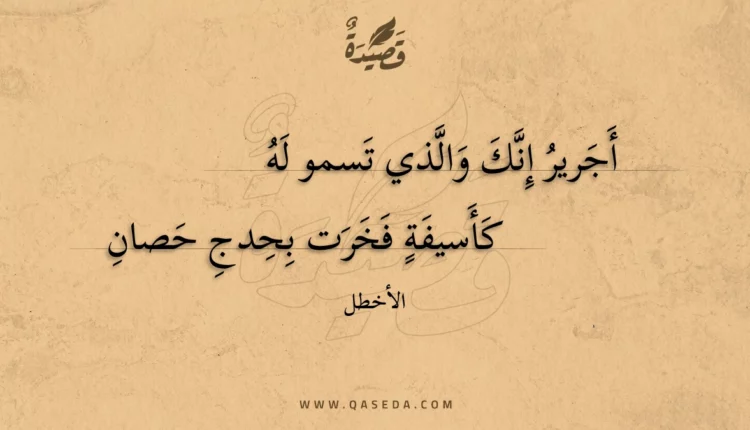 قَصِيْدَةٌ
أَجَريرُ إِنَّكَ وَالَّذي تَسمو لَهُ
كَأَسيفَةٍ فَخَرَت بِحِدجِ حَصانِ
الأخطل
WWW.QASEDA.COM